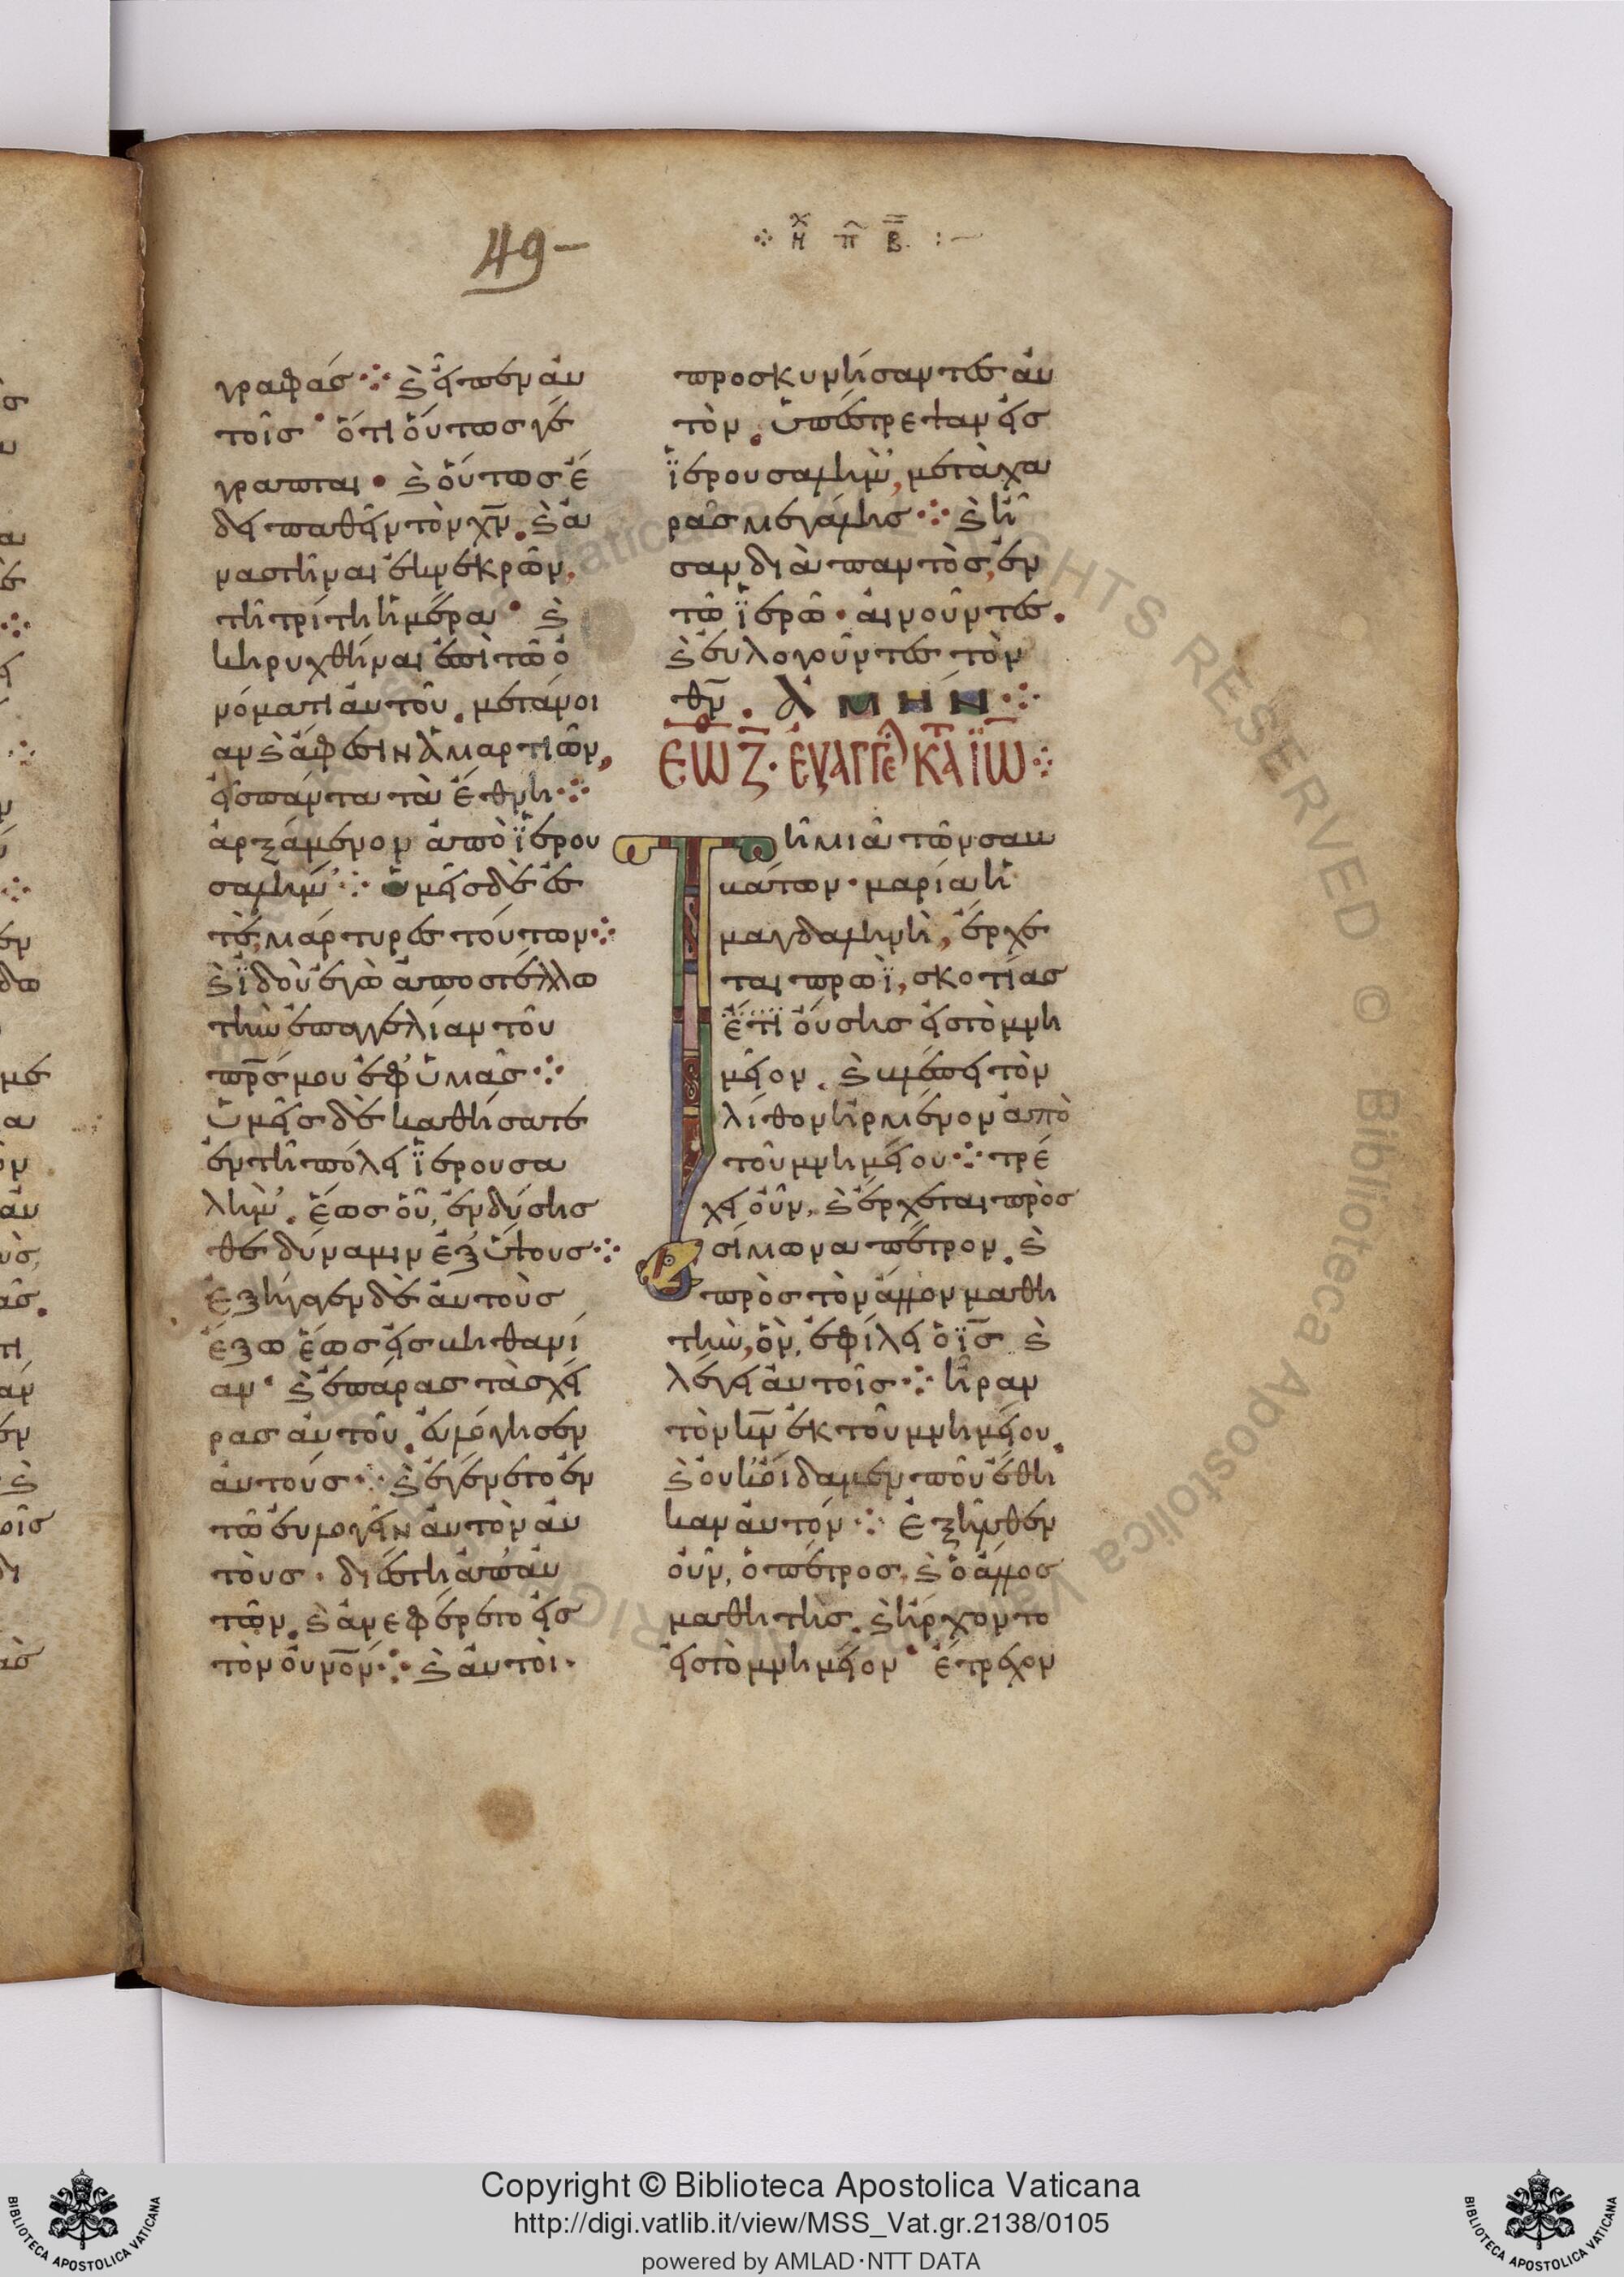 49
⁘ Ηχ Π Β : ~
γραφάς ⁘ ϗ εἶπεν αὐ
τοῖς · ὅτι οὕτως γέ
γραπται · ϗ οὕτως ἔ
δει παθεῖν τὸν χ̅ν̅. ϗ ἀ
ναστῆναι ἐκ νεκρῶν,
τῆ τρίτη ἡμέρα · ϗ
κηρυχθῆναι ἐπὶ τῶ ὀ
νόματι αὐτοῦ. μετάνοι
αν ϗ ἄφεσιν ἁμαρτιῶν,
εἰς πάντα τὰ ἔθνη ⁘
ἀρξάμενον ἀπὸ ϊερου
σαλήμ ⁘ ὑμεῖς δέ ἐσ
τέ, μάρτυρες τούτων ⁘
ϗ ϊδοὺ ἐγὼ ἀποστέλλω
τὴν ἐπαγγελίαν τοῦ
π̅ρ̅ς μου ἐφ' ὑμᾶς ⁘
ὑμεῖς δὲ καθήσατε
ἐν τῆ πόλει ϊερουσα
λήμ. ἕως οὗ, ἐνδύσησ
θε δύναμιν ἐξ ὕψους ⁘
ἐξήγαγεν δὲ αὐτοὺς
ἔξω ἕως εἰς βηθανί
αν · ϗ ἐπάρας τὰς χεῖ
ρας αὐτοῦ. εὐλόγησεν
αὐτούς ⁘ ϗ ἐγένετο ἐν
τῶ εὐλογεῖν αὐτὸν αὐ
τοὺς · διέστη ἀπ' αὐ
τῶν. ϗ ἀνεφέρετο εἰς
τὸν οὐνο̅ν ⁘ ϗ αὐτοὶ ·
προσκυνήσαντες αὐ
τὸν. ὑπέστρεψαν εἰς
ϊερουσαλὴμ, μετὰ χα
ρᾶς μεγάλης ⁘ ϗ ἦ
σαν διὰ παντὸς, ἐν
τῶ ϊερῶ · αἰνοῦντες.
ϗ εὐλογοῦντες τὸν
θ̅ν̅. ἀμήν ⁘
ΕΩ Ζ · ΕΥΑΓΓΕΛ ΚΑΤ ΪΩ ⁘
Τῆ μιᾶ τῶν σαβ
βάτων · μαρία ἡ
μαγδαληνὴ, ἔρχε
ται πρωῒ, σκοτίας
ἔτι οὔσης εἰς τὸ μνη
μεῖον. ϗ βλέπει τὸν
λίθον ἠρμένον ἀπὸ
τοῦ μνημείου ⁘ τρέ
χει οὖν, ϗ ἔρχεται πρὸς
σίμωνα πέτρον. ϗ
πρὸς τὸν ἄλλον μαθη
τὴν, ὃν, ἐφίλει ὁ ϊ̅ς̅ ϗ
λέγει αὐτοῖς ⁘ ἦραν
τὸν κ̅ν̅ ἐκ τοῦ μνημείου.
ϗ οὐκ οἴδαμεν ποῦ ἔθη
καν αὐτόν ⁘ ἐξῆλθεν
οὖν, ὁ πέτρος, ϗ ὁ ἄλλος
μαθητὴς. ϗ ἤρχοντο
εἰς τὸ μνημεῖον · ἔτρεχον
Copyright © Biblioteca Apostolica Vaticana
http://digi.vatlib.it/view/MSS_Vat.gr.2138/0105
powered by AMLAD·NTT DATA